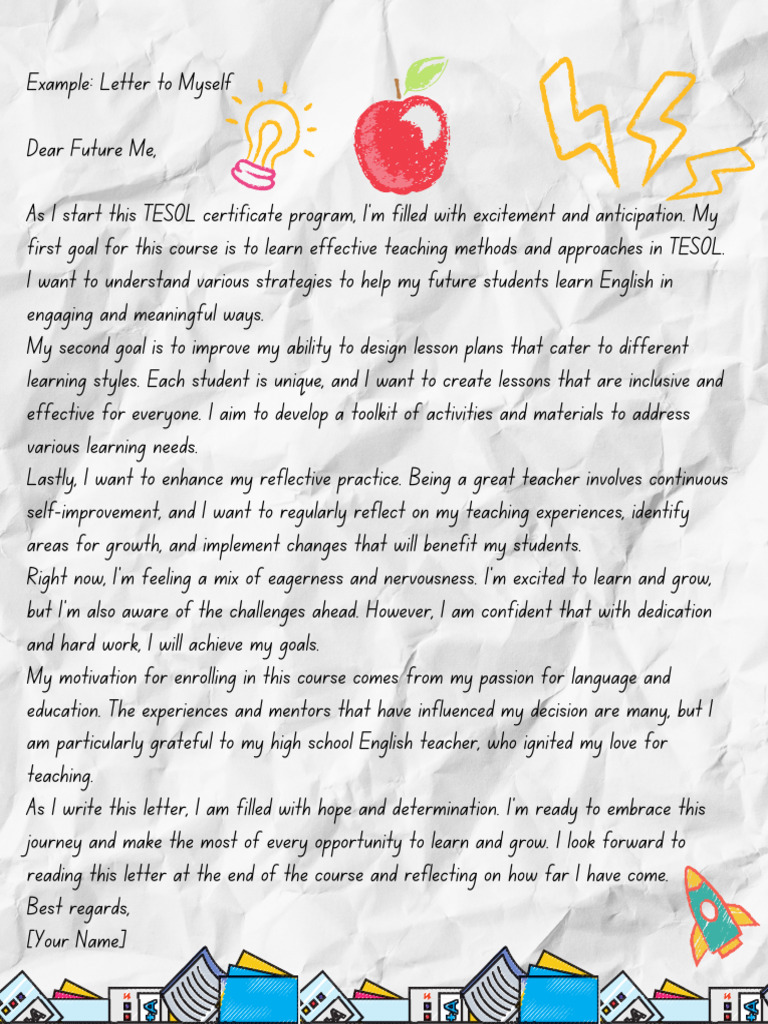 Example: Letter to Myself
Dear Future Me,
As I start this TESOL certificate program, I'm filled with excitement and anticipation. My
first goal for this course is to learn effective teaching methods and approaches in TESOL.
I want to understand various strategies to help my future students learn English in
engaging and meaningful ways.
My second goal is to improve my ability to design lesson plans that cater to different
learning styles. Each student is unique, and I want to create lessons that are inclusive and
effective for everyone. I aim to develop a toolkit of activities and materials to address
various learning needs.
Lastly, I want to enhance my reflective practice. Being a great teacher involves continuous
self-improvement, and I want to regularly reflect on my teaching experiences, identify
areas for growth, and implement changes that will benefit my students.
Right now, I'm feeling a mix of eagerness and nervousness. I'm excited to learn and grow,
but I'm also aware of the challenges ahead. However, I am confident that with dedication
and hard work, I will achieve my goals.
My motivation for enrolling in this course comes from my passion for language and
education. The experiences and mentors that have influenced my decision are many, but I
am particularly grateful to my high school English teacher, who ignited my love for
teaching.
As I write this letter, I am filled with hope and determination. I'm ready to embrace this
journey and make the most of every opportunity to learn and grow. I look forward to
reading this letter at the end of the course and reflecting on how far I have come.
Best regards,
[Your Name]